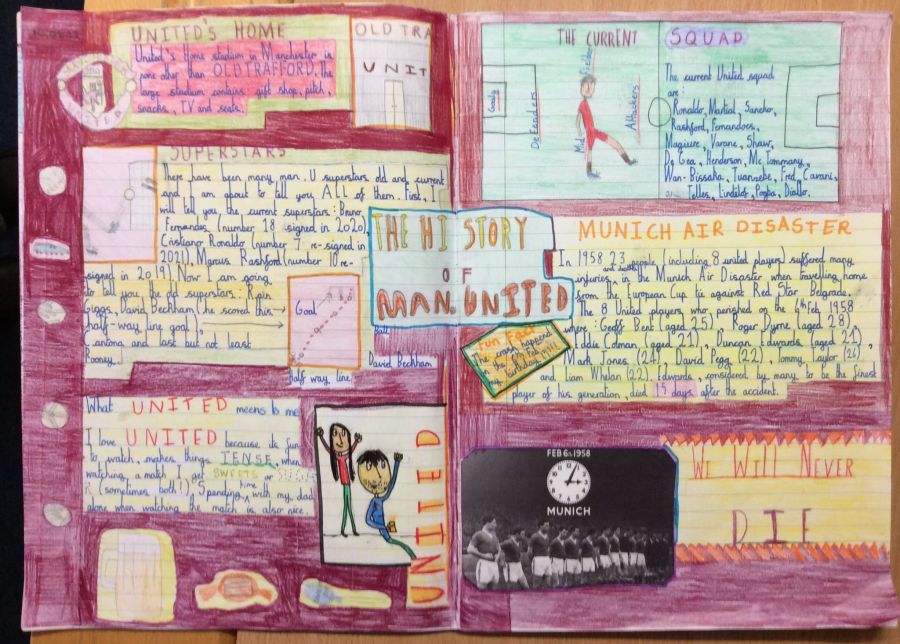 UNITED'S HOME
United's Home stadium in Manchester is
none other than OLD TRAFFORD. The
large stadium contains gift shop, pitch,
snacks, TV and seats.
OLD TRA
UNIT
SUPERSTARS
There have been many man. U superstars old and current
and I am about to tell you ALL of them. First, I
will tell you, the current superstars: Bruno
Fernandes (number 18 signed in 2020),
Cristiano Ronaldo (number 7 re-signed in
2021), Marcus Rashford (number 10 re-
signed in 2019) Now I am going
to tell you the old superstars: Ryan
Giggs, David Beckham (he scored this
half-way line goal),
Cantona and last but not least
Rooney
Goal
Ball
David Beckham
Half way line
What UNITED meens to me
I love UNITED because its fun
to watch, makes things TENSE, when
watching, a match I get SWEETS or
(sometimes both!) Spending time with my dad
alone when watching the match is also nice.
UNITED
THE HISTORY
OF
MAN. UNITED
THE CURRENT SQUAD
Goaly
Defenders
Mid fielder
Attackers
The current United squad
are:
Ronaldo, Martial, Sancho,
Rashford, Fernandoes,
Maguire, Varane, Shaw,
De Gea, Henderson, Mc Tommany,
Wan-Bissaka, Tuanzebe, Fred, Cavani,
Telles, Lindelof, Pogba, Diallo.
MUNICH AIR DISASTER
In 1958 23 people (including 8 united players) suffered many
injuries, and death in the Munich Air Disaster when travelling home
from the European Cup tie against Red Star Belgrade.
The 8 United players who perished on the 6th Feb 1958
where: Geoff Bent (aged 25) Roger Byrne (aged 28),
Eddie Colman (aged 21), Duncan Edwards (aged 21),
Mark Jones (24) David Pegg (22), Tommy Taylor (26)
and Liam Whelan (22). Edwards, considered by many to be the finest
player of his generation, died 15 days after the accident.
Fun Fact
The crash happend
in the 6th Feb
my birthday
FEB 6th 1958
MUNICH
WE WILL NEVER
DIE